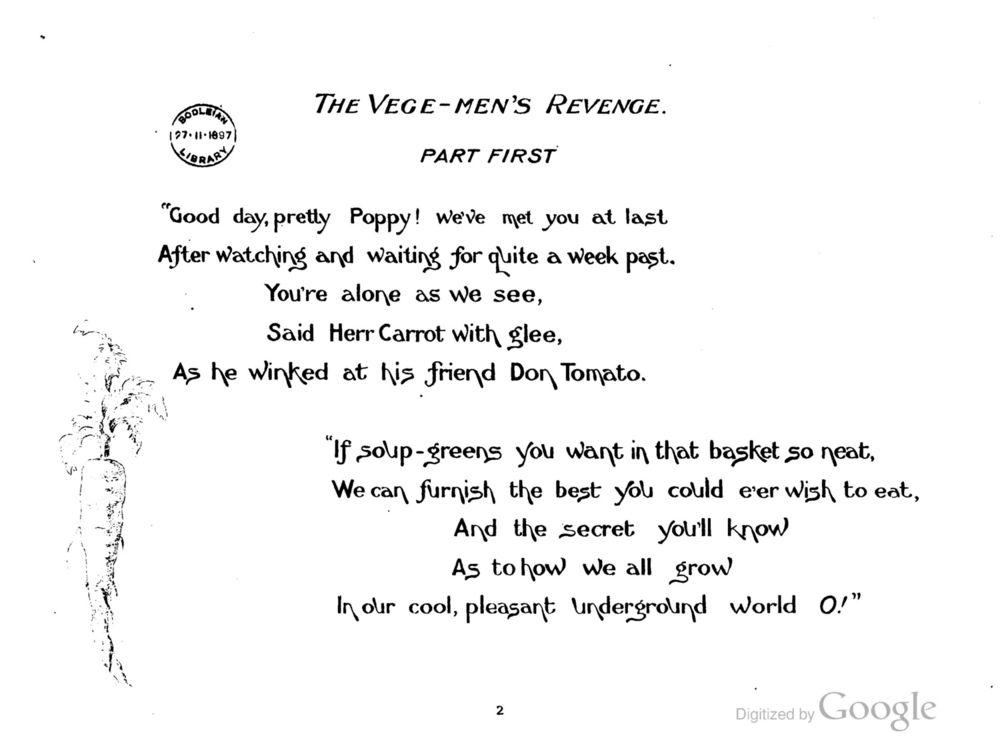 THE VEGE-MEN'S REVENGE.
BODLEIAN
27·11·1897
LIBRARY
PART FIRST
"Good day, pretty Poppy! We've met you at last
After watching and waiting for quite a week past.
You're alone as we see,
Said Herr Carrot with glee,
As he winked at his friend Don Tomato.
"If soup-greens you want in that basket so neat,
We can furnish the best you could e'er wish to eat,
And the secret you'll know
As to how we all grow
In our cool, pleasant underground world O!"
2
Digitized by Google